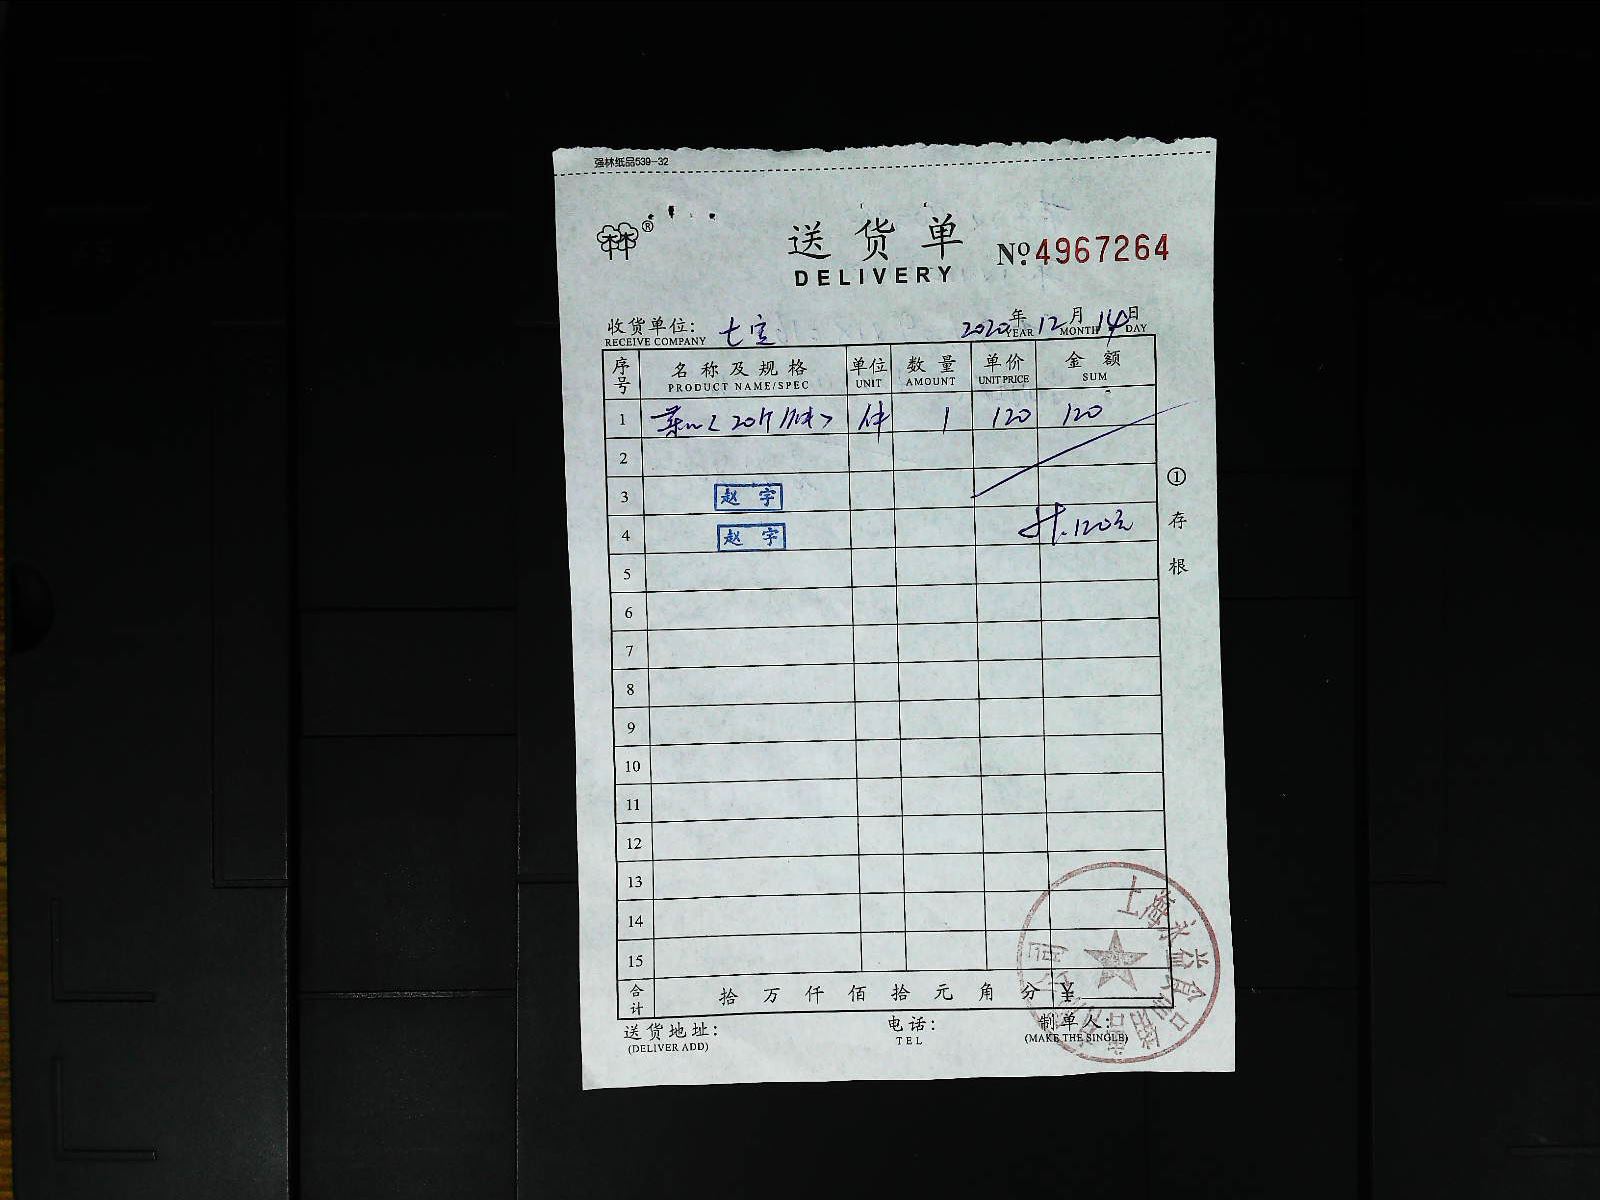 强林纸品539-32
林®
送货单 No.4967264
DELIVERY
收货单位: 七宝 2020年12月14日
RECEIVE COMPANY YEAR MONTH DAY
序号 名称及规格 单位 数量 单价 金额
PRODUCT NAME/SPEC UNIT AMOUNT UNIT PRICE SUM
1 (20个/件) 件 1 120 120
2
3 赵宇
4 赵宇 计:120元
5
6
7
8
9
10
11
12
13
14
15
合计 拾万仟佰拾元角分 ¥
送货地址: 电话: 制单人:
(DELIVER ADD) TEL (MAKE THE SINGLE)
①存根
上海